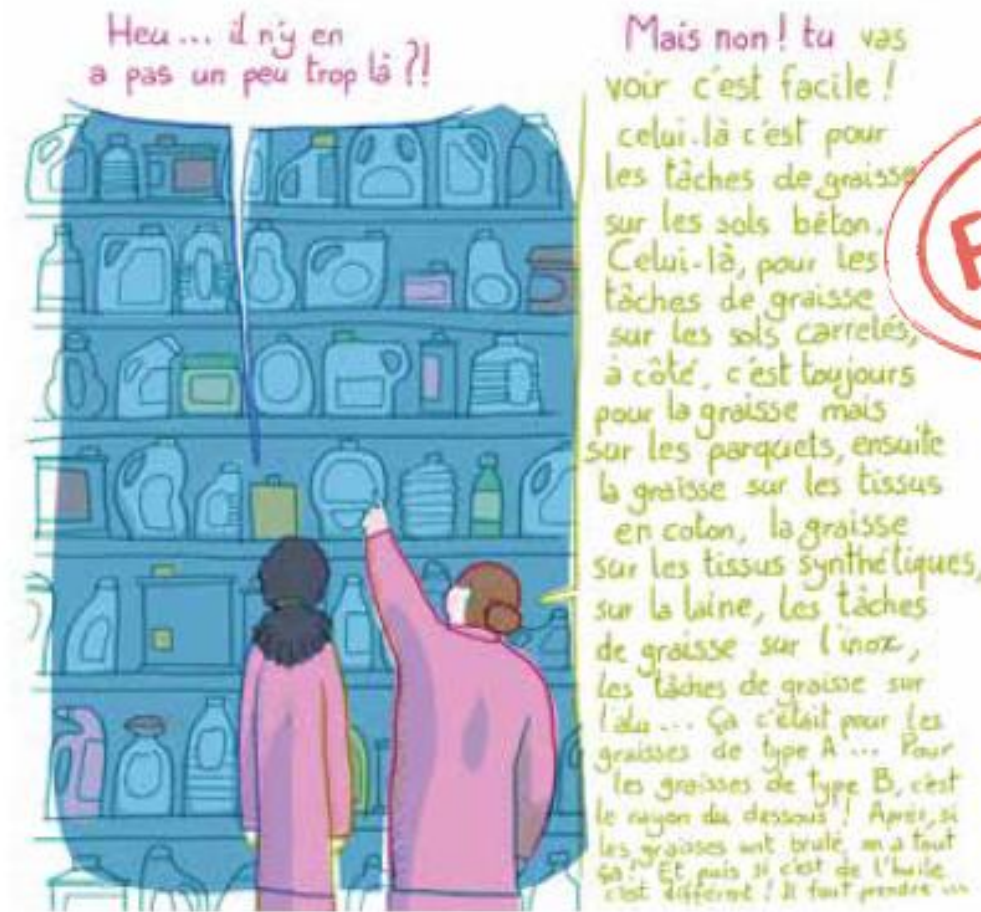 Heu... il n'y en
a pas un peu trop là ?!
Mais non ! tu vas
voir c'est facile !
celui-là c'est pour
les tâches de graisse
sur les sols béton.
Celui-là, pour les
tâches de graisse
sur les sols carrelés,
à côté, c'est toujours
pour la graisse mais
sur les parquets, ensuite
la graisse sur les tissus
en coton, la graisse
sur les tissus synthétiques,
sur la laine, les tâches
de graisse sur l'inox,
les tâches de graisse sur
l'alu... Ça c'était pour les
graisses de type A... Pour
les graisses de type B, c'est
le rayon du dessous ! Après, si
les graisses ont brulé, on a tout
ça ! Et puis si c'est de l'huile
c'est différent ! Il faut prendre ...